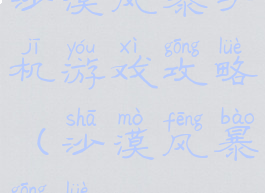 沙漠风暴手
jī yóu xì gōng lüè
机游戏攻略
shā mò fēng bào
（沙漠风暴
gōng lüè